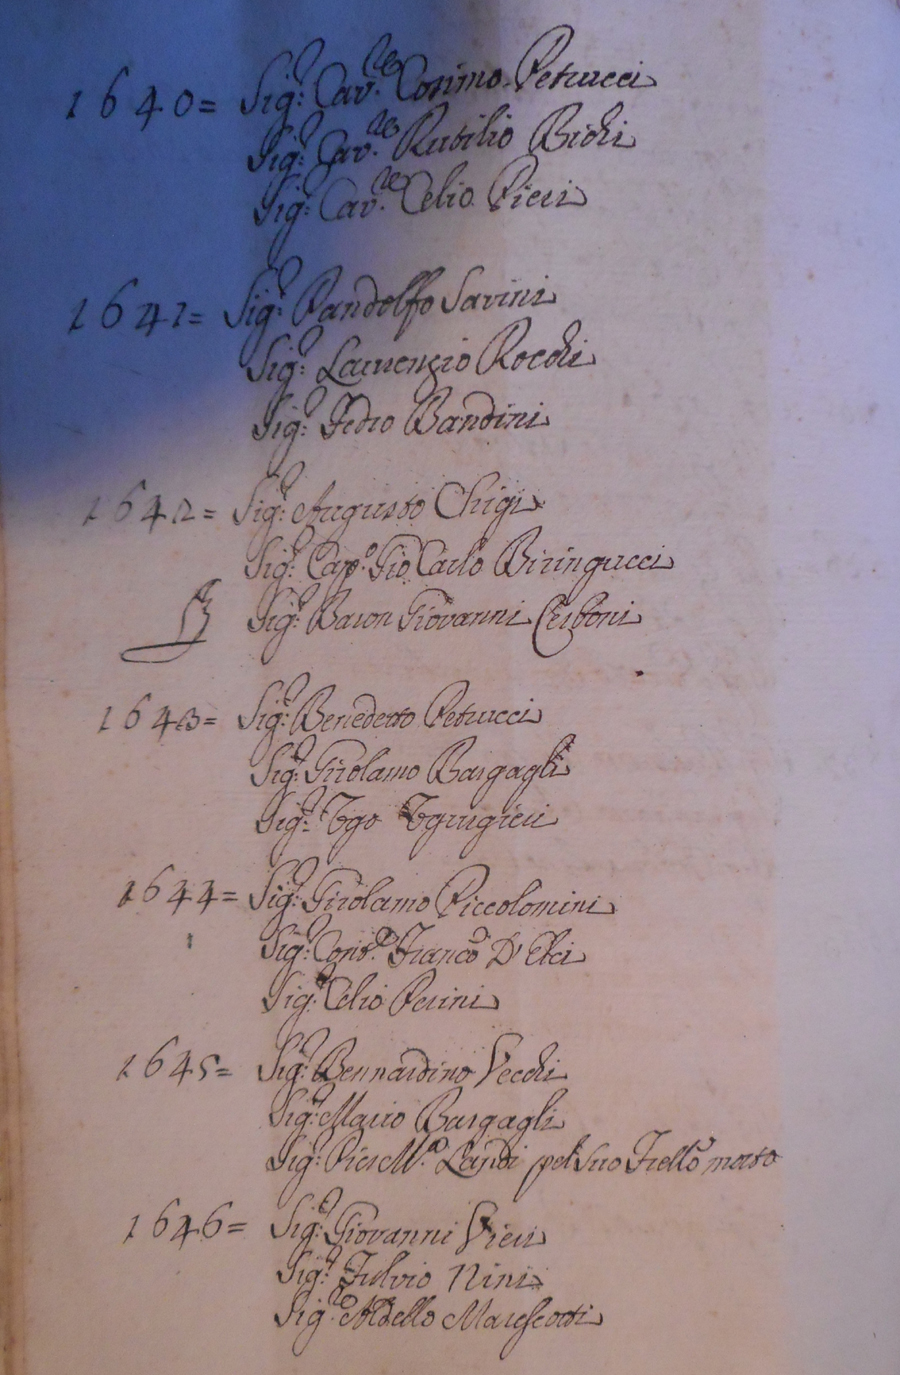 1640= Sig:r Cav:re Cosimo Petrucci
Sig:r Cav:re Rutilio Bichi
Sig:r Cav:re Celio Pieri
1641= Sig:r Pandolfo Savini
Sig:r Laurenzio Rocchi
Sig:r Fedro Bandini
1642= Sig:r Augusto Chigi
Sig:r Cap:o Gio Carlo Biringucci
Sig:r Baron Giovanni Cerboni
1643= Sig:r Benedetto Petrucci
Sig:r Girolamo Bargagli
Sig:r Ugo Ugurgieri
1644= Sig:r Girolamo Piccolomini
Sig:r Franco D'Elci
Sig:r Celio Perini
1645= Sig:r Bernardino Vecchi
Sig:r Mario Bargagli
Sig:r Pier M:a Landi pel suo Frello morto
1646= Sig:r Giovanni Vieri
Sig:r Fulvio Nini
Sig:r Aldello Marescotti